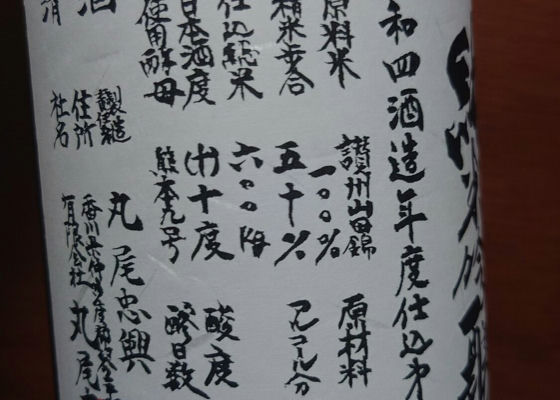 和四酒造年度仕込み
原料米 讃州山田錦 原材料
一〇〇%
精米歩合 五十% アルコール分
仕込総米 六〇〇kg
日本酒度 (十)十度 酸度
使用酵母 熊本九号 醪日数
酒
製造 丸尾忠興
住所 香川県仲多度郡
社名 有限会社 丸尾